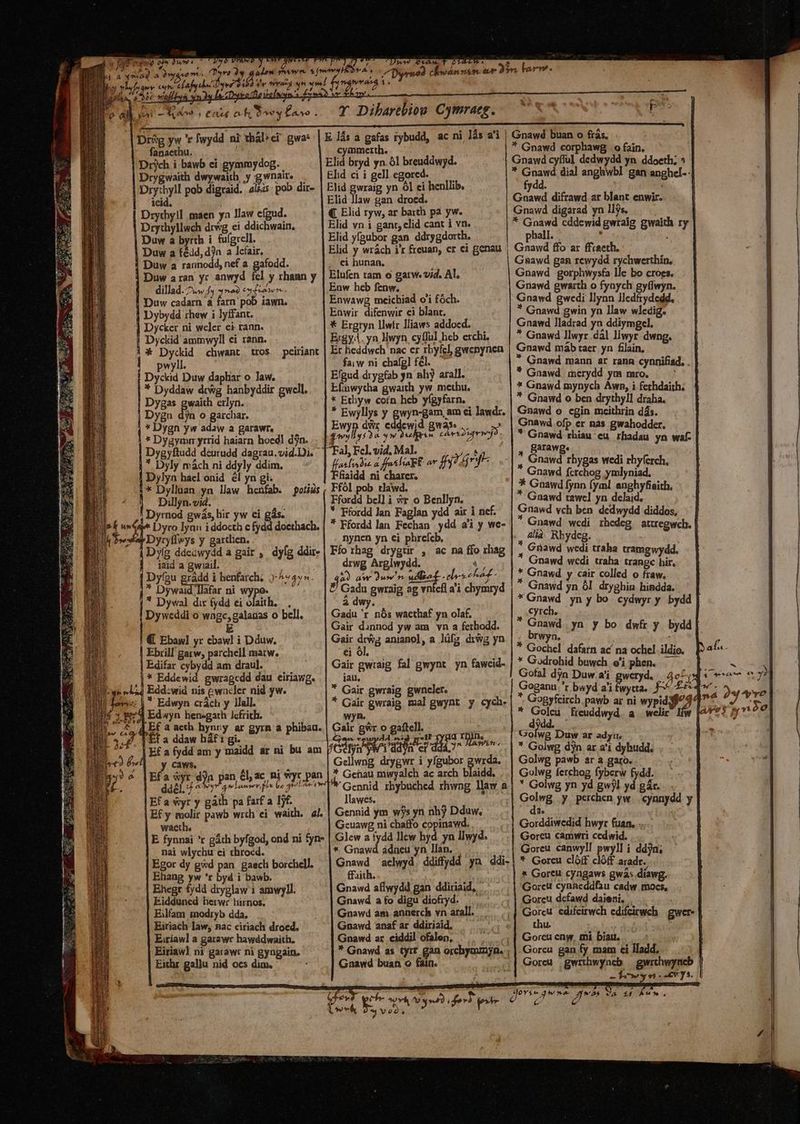 Y Diharebion Cymraeg.
Drŵg yw 'r ſwydd ni thâl ei gwas
fanaethu.
Drŷch i bawb ei gymmydog.
Drygwaith dwywaith y gwnair.
Drythyll pob digraid. aliàs pob dir-
ieid.
Drythyll maen yn llaw eſgud.
Drythyllwch drŵg ei ddichwain.
Duw a byrth i fuſgrell.
Duw a fêdd, dŷn a lefair.
Duw a rannodd, nef a gafodd.
Duw a ran yr anwyd fel y rhann y
dillad.
Duw cadarn a farn pob iawn.
Dybydd rhew i lyffant.
Dycker ni weler ei rann.
Dyckid ammwyll ei rann.
* Dyckid chwant tros peiriant
pwyll.
Dyckid Duw daphar o law.
* Dyddaw drŵg hanbyddir gwell.
Dygas gwaith erlyn.
Dygn dŷn o garchar.
* Dygn yw adaw a garawr.
* Dygymmyrrid haiarn hoedl dŷn.
Dygyſtudd deurudd dagrau. vid. Di.
* Dyly mâch ni ddyly ddim.
Dylyn hael onid êl yn gi.
* Dylluan yn llaw henfab. potiùs
Dillyn. vid.
Dyrnod gwâs, hir yw ei gâs.
* Dyro lynn i ddoeth e fydd doethach.
Dyryſſwys y garthen.
Dyſg ddedwydd a gair, dyſg ddir-
iaid a gwiail.
Dyſgu grâdd i henfarch.
* Dywaid llafar ni wypo.
* Dywal dir fydd ei olaith.
Dyweddi o wnge, galanas o bell.
E
¶ Ebawl yr ebawl i Dduw.
Ebrill garw, parchell marw.
Edifar cybydd am draul.
* Eddewid gwragedd dau eiriawg.
Eddewid nis gwneler nid yw.
* Edwyn crâch y llall.
Edwyn hen gath lefrith.
Ef a aeth hynny ar gyrn a phibau.
Ef a ddaw hâf i gi.
Ef a fydd am y maidd ar ni bu am
y caws.
Ef a ŵyr dŷn pan êl, ac ni ŵyr pan
ddêl.
Ef a ŵyr y gâth pa farf a lŷf.
Ef y molir pawb wrth ei waith. al.
waeth.
E fynnai 'r gâth byſgod, ond ni fyn-
nai wlychu ei throed.
Egor dy gwd pan gaech borchell.
Ehang yw 'r byd i bawb.
Ehegr fydd dryglaw i amwyll.
Eidduned herwr hirnos.
Eilfam modryb dda.
Eiriach law, nac eiriach droed.
Eiriawl a garawr hawddwaith.
Eiriawl ni garawr ni gyngain.
Eithr gallu nid oes dim.
E lâs a gafas rybudd, ac ni lâs a'i
cymmerth.
Elid bryd yn ôl breuddwyd.
Elid ci i gell egored.
Elid gwraig yn ôl ei henllib.
Elid llaw gan droed.
¶ Elid ryw, ar barth pa yw.
Elid yn i gant, elid cant i vn.
Elid yſgubor gan ddrygdorth.
Elid y wrâch i'r freuan, er ei genau
ei hunan.
Eluſen tam o garw. vid. Al.
Enw heb fenw.
Enwawg meichiad o'i fôch.
Enwir difenwir ei blant.
* Ergryn llwfr lliaws addoed.
Ergyd yn llwyn cyſſul heb erchi.
Er heddwch nac er rhyfel, gwenynen
farw ni chaſgl fêl.
Eſgud drygfab yn nhŷ arall.
Eſmwytha gwaith yw methu.
* Ethyw corn heb yſgyfarn.
* Ewyllys y gwyn-gam, am ei lawdr.
Ewyn dŵr eddewid gwas.
Fal, Fel. vid. Mal.
Ffiaidd ni charer.
Ffôl pob tlawd.
Ffordd bell i ŵr o Benllyn.
* Ffordd lan Faglan ydd air i nef.
* Ffordd lan Fechan ydd a'i y we-
nynen yn ei phreſeb.
Ffo rhag drygtir, ac na ffo rhag
drwg Arglwydd.
Gadu gwraig ag vnfefl a'i chymryd
â dwy.
Gadu 'r nôs waethaf yn olaf.
Gair dannod yw am vn a ferhodd.
Gair drŵg anianol, a lûſg drŵg yn
ei ôl.
Gair gwraig fal gwynt yn faweid-
iau.
* Gair gwraig gwneler.
* Gair gwraig mal gwynt y cych-
wyn.
Gair gŵr o gaſtell.
Gellwng drygwr i yſgubor gwrda.
* Genau mwyalch ac arch blaidd.
* Gennid rhybuched rhwng llaw a
llawes.
Gennid ym wŷs yn nhŷ Dduw.
Geuawg ni chaffo copinawd.
Glew a fydd llew hyd yn llwyd.
* Gnawd adneu yn llan.
Gnawd aelwyd ddiffydd yn ddi-
ffaith.
Gnawd aflwydd gan ddiriaid.
Gnawd a fo digu diofryd.
Gnawd am annerch vn arall.
Gnawd anaf ar ddiriaid.
Gnawd ar eiddil ofalon.
* Gnawd as tyrr gan orchymmyn.
Gnawd buan o fain.
Gnawd buan o frâs.
* Gnawd corphawg o fain.
* Gnawd cyſſul dedwydd yn ddoeth.
* Gnawd dial anghwbl gan anghel-
fydd.
Gnawd difrawd ar blant enwir.
Gnawd digarad yn llŷs.
* Gnawd eddewid gwraig gwaith ry
phall.
Gnawd ffo ar ffraeth.
Gnawd gan rewydd rychwerthin.
Gnawd gorphwysfa lle bo croes.
Gnawd gwarth o fynych gyflwyn.
Gnawd gwedi llynn lledfrydedd.
* Gnawd gwin yn llaw wledig.
Gnawd lladrad yn ddiymgel.
* Gnawd llwyr dâl llwyr dwng.
Gnawd mâb taer yn filain.
* Gnawd mann ar rann cynnifiad.
* Gnawd merydd ym mro.
* Gnawd mynych Awn, i ferhdaith.
* Gnawd o ben drythyll draha.
Gnawd o egin meithrin dâs.
Gnawd ofp er nas gwahodder.
* Gnawd rhiau eu rhadau yn waſ-
garawg.
* Gnawd rhygas wedi rhyſerch.
* Gnawd ſerchog ymlyniad.
* Gnawd ſynn ſyml anghyfiaith.
* Gnawd tawel yn delaid.
Gnawd vch ben dedwydd diddos.
* Gnawd wedi rhedeg attregwch.
alià Rhydeg.
* Gnawd wedi traha tramgwydd.
* Gnawd wedi traha trange hir.
* Gnawd y cair colled o fraw.
* Gnawd yn ôl dryghin hindda.
* Gnawd yn y bo cydwyr y bydd
cyrch.
* Gnawd yn y bo dwfr y bydd
brwyn.
* Gochel dafarn ac na ochel ildio.
* Godrohid buwch o'i phen.
Gofal dŷn Duw a'i gweryd.
Goganu 'r bwyd a'i fwytta.
* Gogyfeirch pawb ar ni wypid.
* Goleu freuddwyd a welir liw
dŷdd.
Golwg Duw ar adyn.
* Golwg dŷn ar a'i dyhudd.
Golwg pawb ar a garo.
Golwg ſerchog ſyberw fydd.
* Golwg yn yd gwŷl yd gâr.
Golwg y perchen yw cynnydd y
da.
Gorddiwedid hwyr fuan.
Goreu camwri cedwid.
Goreu canwyll pwyll i ddŷn.
* Goreu clôff clôff aradr.
* Goreu cyngaws gwâs diawg.
Goreu cynneddfau cadw moes.
Goreu defawd daioni.
Goreu edifeirwch edifeirwch gwer-
thu.
Goreu enw, mi biau.
Goreu gan ſy mam ei lladd.
Goreu gwrthwyneb gwrthwyneb